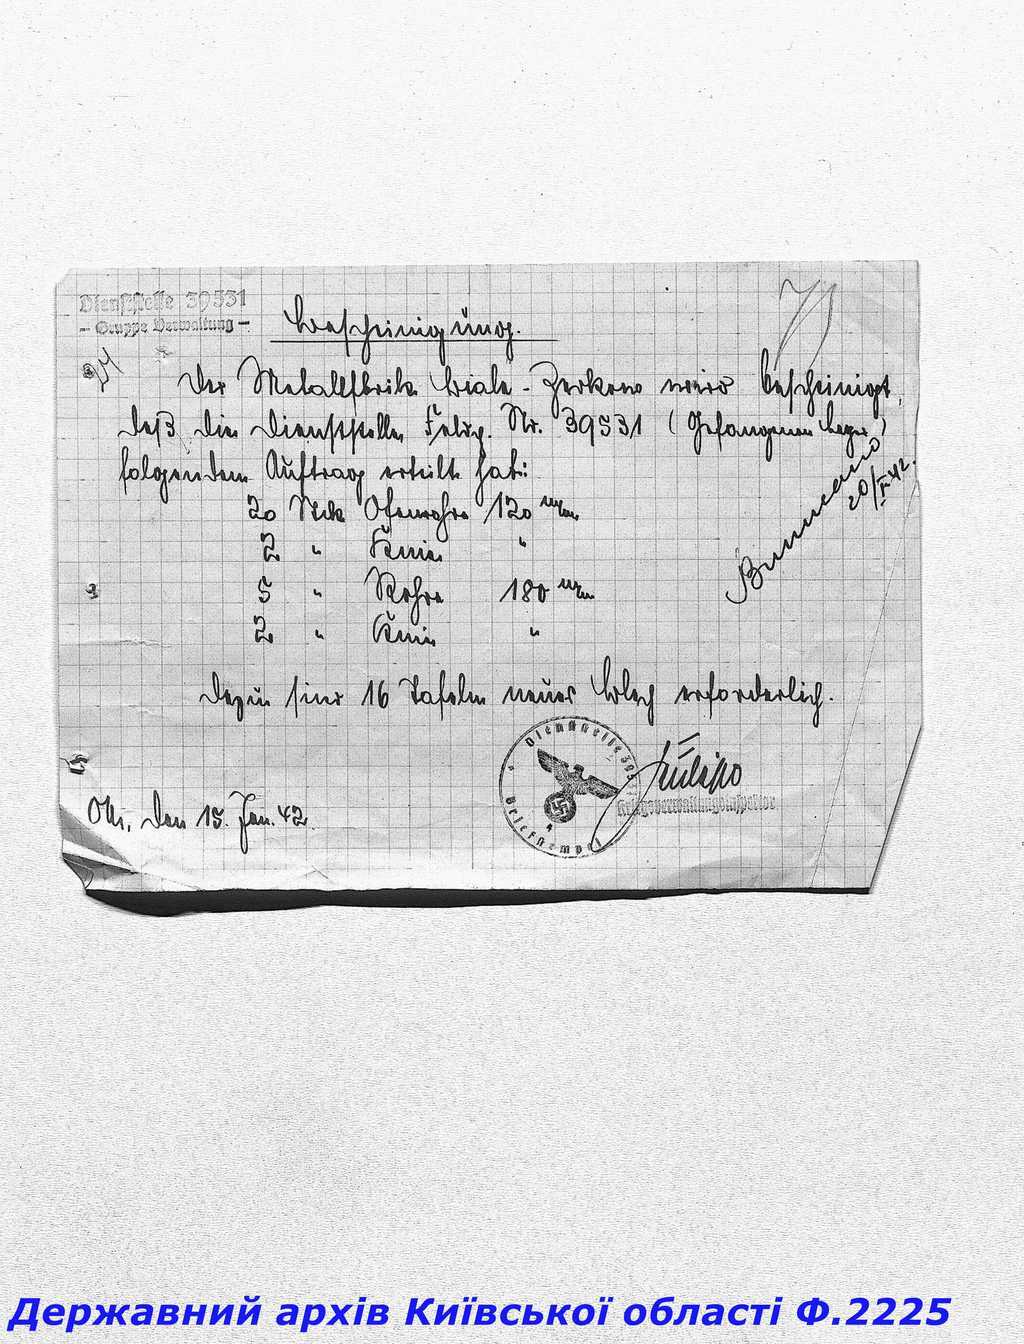 Dienststelle 39531
- Gruppe Verwaltung -
Bescheinigung.
Der Metallfbrik Biala - Zerkow wird bescheinigt,
daß die Dienststelle Feldp. Nr. 39531 (Gefangenen Lager)
folgenden Auftrag erteilt hat:
20 Stck Ofenrohre 120 m/m
2 " Knie "
5 " Rohre 180 m/m
2 " Knie "
Dazu sind 16 Tafeln neues Blech erforderlich.
20/I 42.
Dienststelle 39531
Briefstempel
Kriegsverwaltungsinspektor
OU, den 15. Jan. 42.
Державний архів Київської області Ф.2225